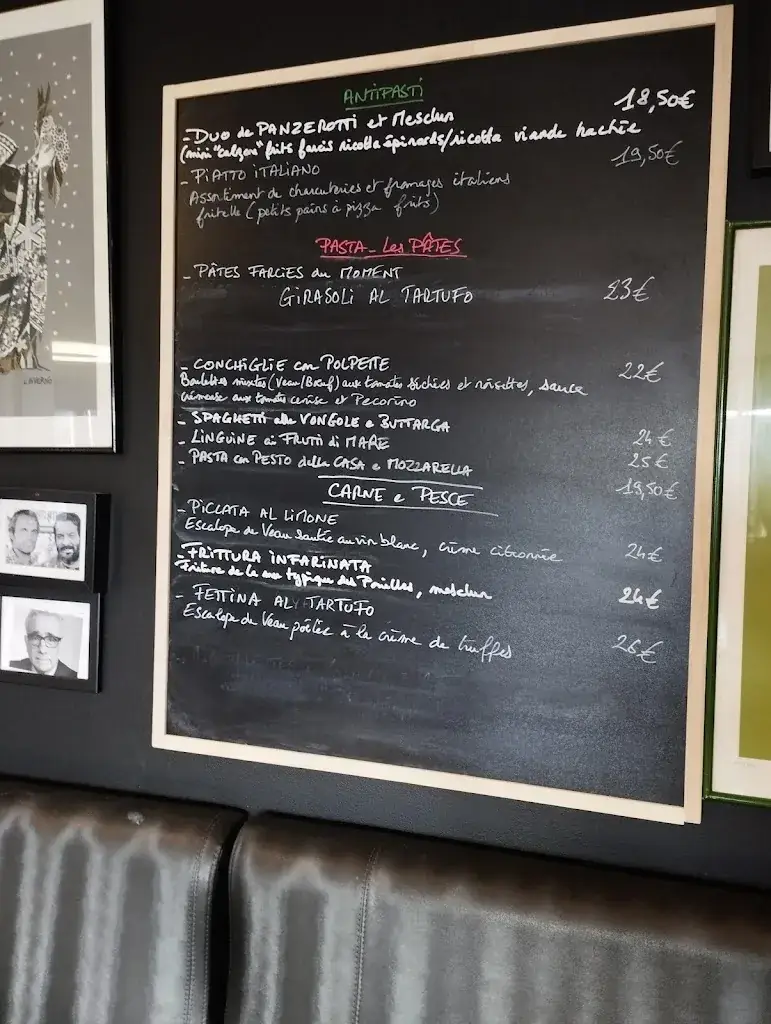 ANTIPASTI
- DUO de PANZEROTTI et Mesclun 18,50€
(mini "calzone" frits farcis ricotta épinards/ricotta viande hachée
- PIATTO ITALIANO 19,50€
Assortiment de charcuteries et fromages italiens
fritelle (petits pains à pizza frits)
PASTA - Les PÂTES
- PÂTES FARCIES du MOMENT
GIRASOLI AL TARTUFO 23€
- CONCHIGLIE con POLPETTE 22€
Boulettes mixtes (Veau/Bœuf) aux tomates séchées et noisettes, sauce
crémeuse aux tomates cerise et Pecorino
- SPAGHETTI alle VONGOLE e BUTTARGA 24€
- LINGUINE ai FRUTTI di MARE 25€
- PASTA con PESTO della CASA e MOZZARELLA 19,50€
CARNE e PESCE
- PICCATA AL LIMONE
Escalope de Veau sautée au vin blanc, crème citronnée 24€
- FRITTURA INFARINATA
Friture de la mer typique des Pouilles, mesclun 24€
- FETTINA AL TARTUFO
Escalope de Veau poêlée à la crème de truffes 26€
L'INVERNO